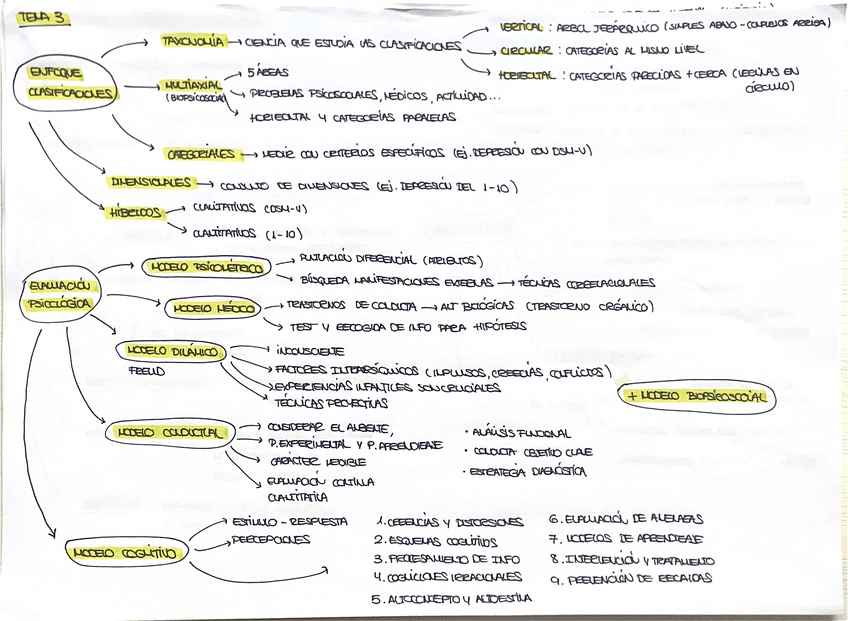 TEMA 3
TAXONOMÍA → CIENCIA QUE ESTUDIA LAS CLASIFICACIONES
VERTICAL : ARBOL JERÁRQUICO (SIMPLES ABAJO - COMPLEJOS ARRIBA)
CIRCULAR : CATEGORÍAS AL MISMO NIVEL
HORIZONTAL : CATEGORÍAS PARECIDAS + CERCA (VECINAS EN
CÍRCULO)
ENFOQUE
CLASIFICACIONES
MULTIAXIAL
(BIOPSICOSOCIAL)
5 ÁREAS
PROBLEMAS PSICOSOCIALES, MÉDICOS, ACTIVIDAD...
HORIZONTAL Y CATEGORÍAS PARALELAS
CATEGORIALES → MEDIR CON CRITERIOS ESPECÍFICOS (EJ. DEPRESIÓN CON DSM-V)
DIMENSIONALES → CONJUNTO DE DIMENSIONES (EJ. DEPRESIÓN DEL 1-10)
HÍBRIDOS
CUALITATIVOS (DSM-V)
CUANTITATIVOS (1-10)
EVALUACIÓN
PSICOLÓGICA
MODELO PSICOMÉTRICO
PUNTUACIÓN DIFERENCIAL (PACIENTES)
BÚSQUEDA MANIFESTACIONES EXTERNAS → TÉCNICAS CORRELACIONALES
MODELO MÉDICO
TRASTORNOS DE CONDUCTA → ALT BIOLÓGICAS (TRASTORNO ORGÁNICO)
TEST Y RECOGIDA DE INFO PARA HIPÓTESIS
MODELO DINÁMICO
FREUD
INCONSCIENTE
FACTORES INTRAPSÍQUICOS (IMPULSOS, CREENCIAS, CONFLICTOS)
EXPERIENCIAS INFANTILES SON CRUCIALES
TÉCNICAS PROYECTIVAS
+ MODELO BIOPSICOSOCIAL
MODELO CONDUCTUAL
CONSIDERAR EL AMBIENTE,
P. EXPERIMENTAL Y P. APRENDIZAJE
CARÁCTER MEDIBLE
EVALUACIÓN CONTINUA
CUANTITATIVA
• ANÁLISIS FUNCIONAL
• CONDUCTA OBJETIVO CLAVE
• ESTRATEGIA DIAGNÓSTICA
MODELO COGNITIVO
ESTÍMULO - RESPUESTA
PERCEPCIONES
1. CREENCIAS Y DISTORSIONES
2. ESQUEMAS COGNITIVOS
3. PROCESAMIENTO DE INFO
4. COGNICIONES IRRACIONALES
5. AUTOCONCEPTO Y AUTOESTIMA
6. EVALUACIÓN DE AMENAZAS
7. MODELOS DE APRENDIZAJE
8. INTERVENCIÓN Y TRATAMIENTO
9. PREVENCIÓN DE RECAÍDAS